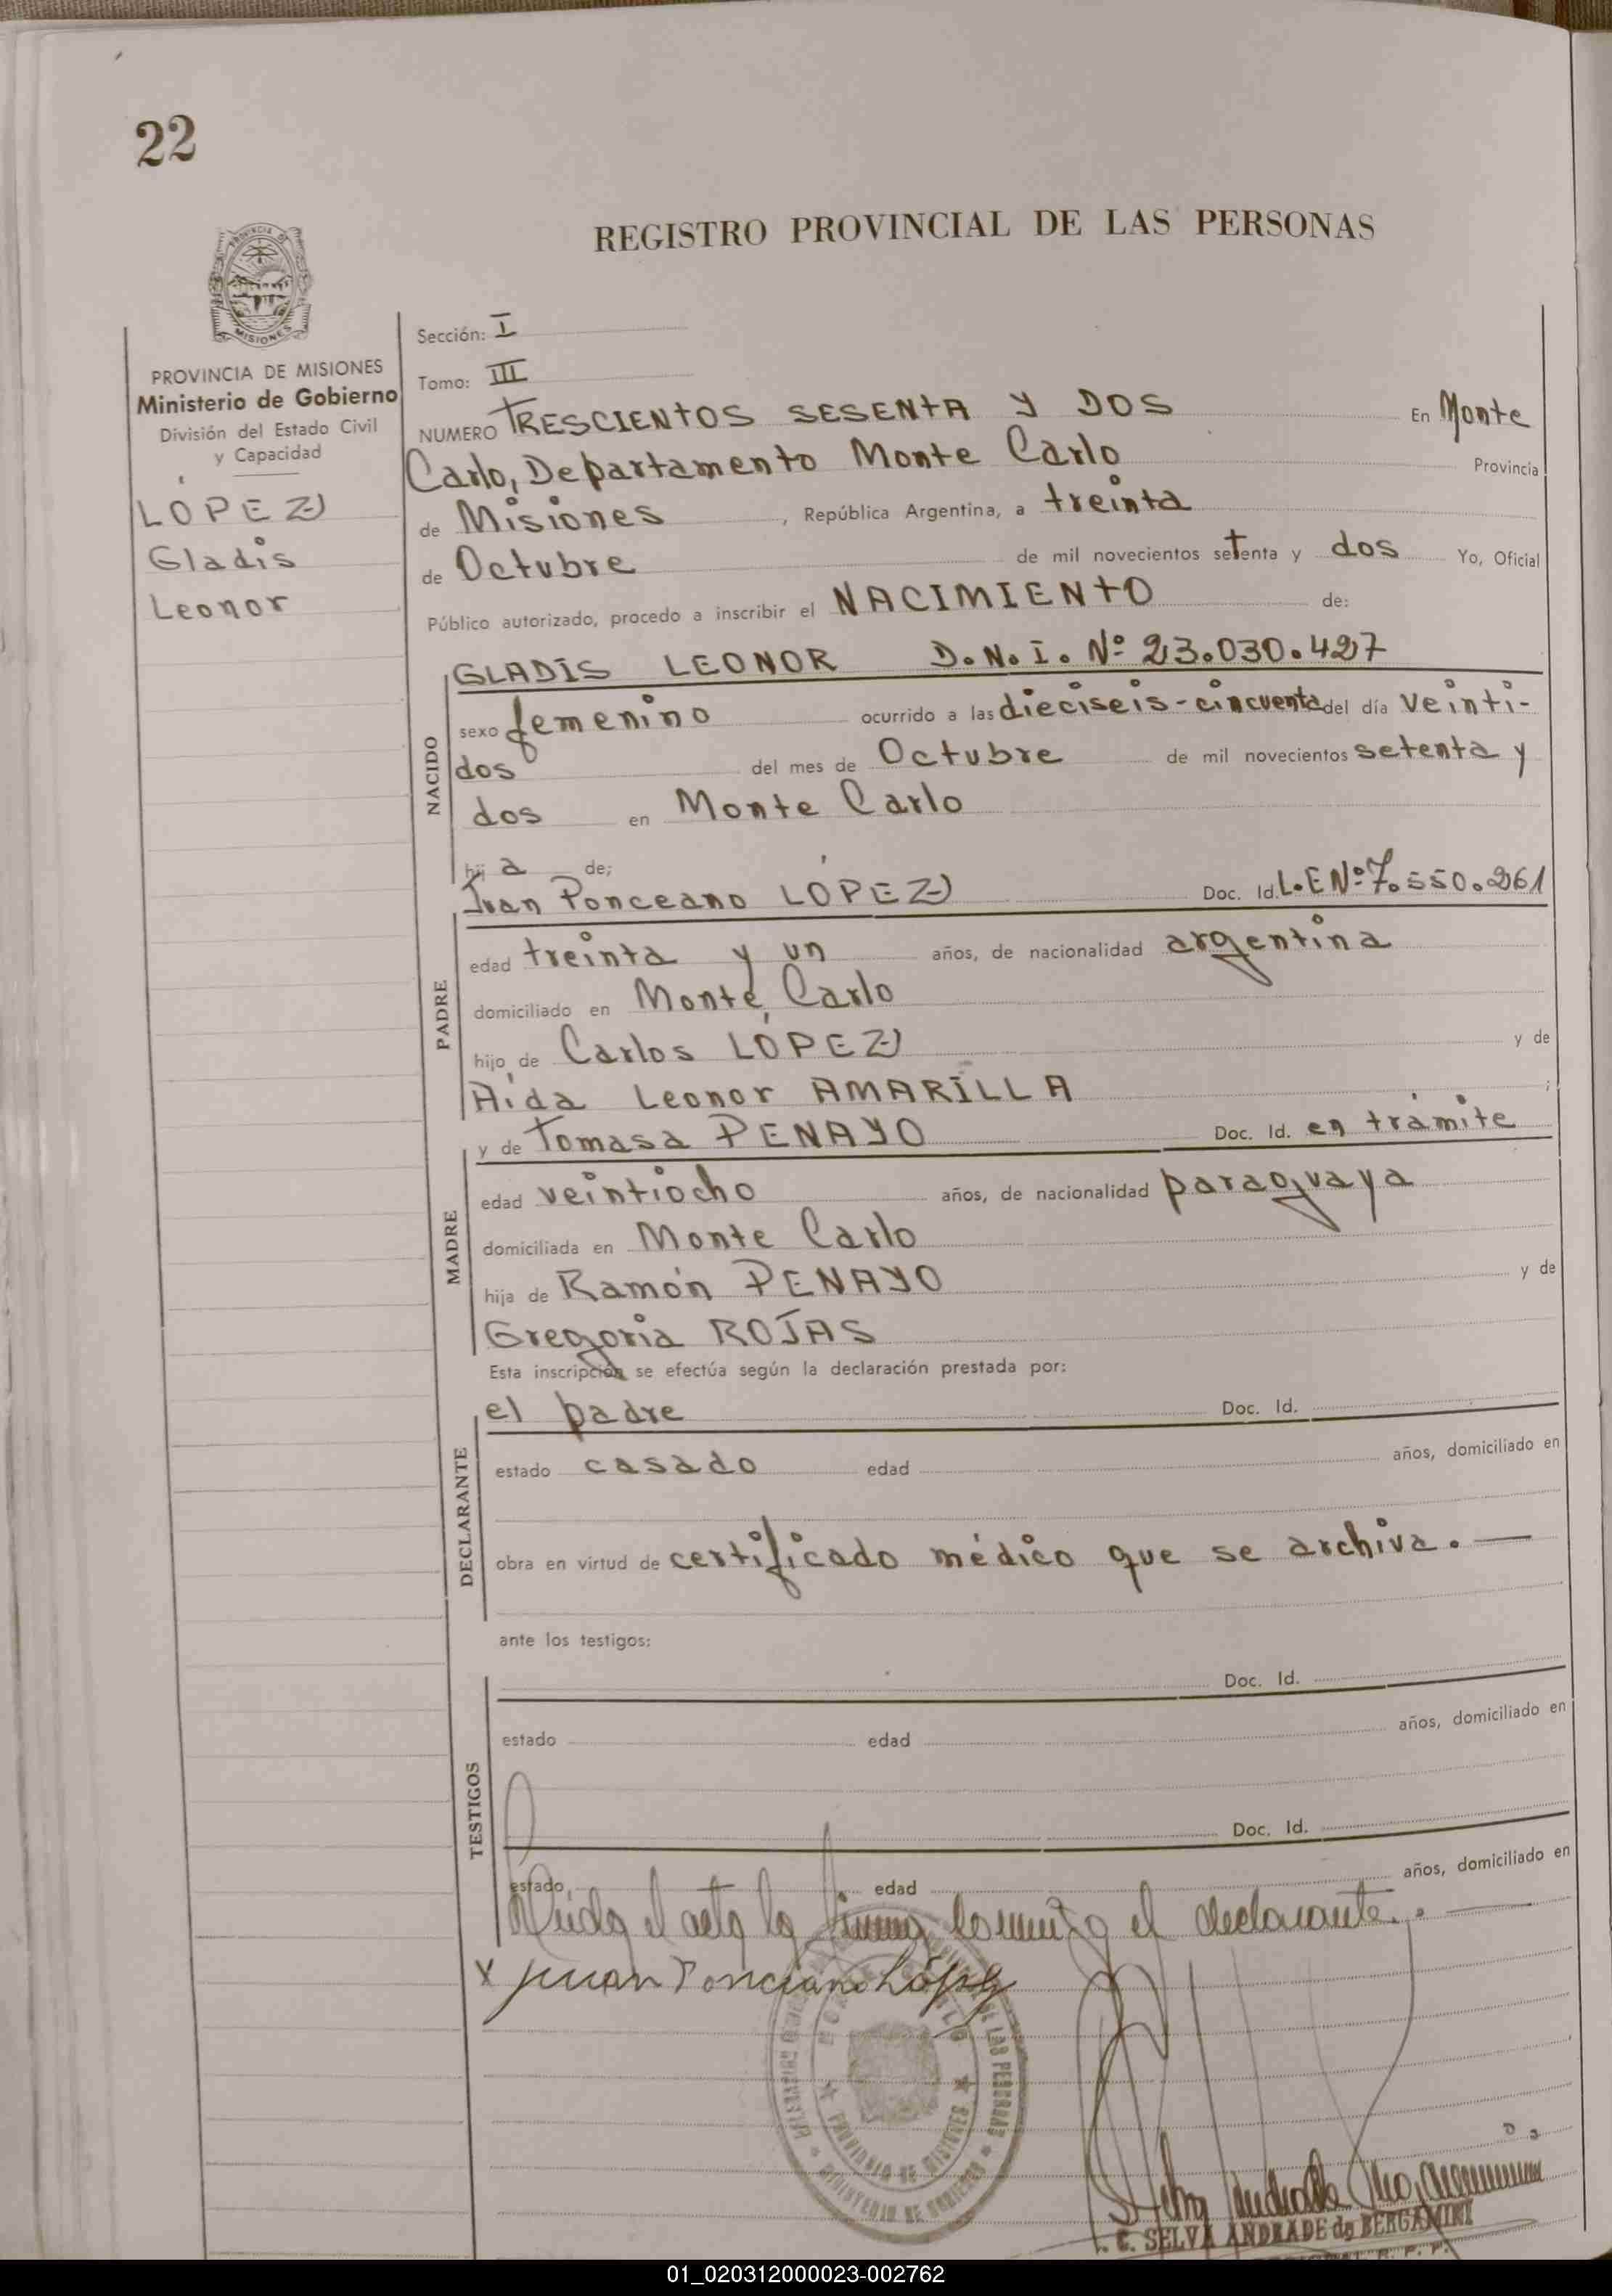 22
REGISTRO PROVINCIAL DE LAS PERSONAS
PROVINCIA DE MISIONES
Ministerio de Gobierno
División del Estado Civil
y Capacidad
LÓPEZ
Gladis
Leonor
Sección: I
Tomo: III
NUMERO TRESCIENTOS SESENTA Y DOS En Monte
Carlo, Departamento Monte Carlo Provincia
de Misiones, República Argentina, a treinta
de Octubre de mil novecientos setenta y dos Yo, Oficial
Público autorizado, procedo a inscribir el NACIMIENTO de:
NACIDO
GLADIS LEONOR D.N.I. Nº 23.030.427
sexo femenino ocurrido a las dieciseis-cincuenta del día veinti-
dos del mes de Octubre de mil novecientos setenta y
dos en Monte Carlo
hija de;
PADRE
Juan Ponceano LÓPEZ Doc. Id. L.E Nº 7.550.261
edad treinta y un años, de nacionalidad argentina
domiciliado en Monte Carlo
hijo de Carlos LÓPEZ y de
Aída Leonor AMARILLA ;
MADRE
y de Tomasa PENAYO Doc. Id. en trámite
edad veintiocho años, de nacionalidad paraguaya
domiciliada en Monte Carlo
hija de Ramón PENAYO y de
Gregoria ROJAS
Esta inscripción se efectúa según la declaración prestada por:
DECLARANTE
el padre Doc. Id.
estado casado edad años, domiciliado en
obra en virtud de certificado médico que se archiva. —
ante los testigos:
TESTIGOS
Doc. Id.
estado edad años, domiciliado en
Doc. Id.
estado edad años, domiciliado en
Leída el acta la firma conmigo el declarante. —
x Juan Ponciano López
PROVINCIA DE MISIONES
MINISTERIO DE GOBIERNO
C. SELVA ANDRADE de BERGAMINI
01_020312000023-002762